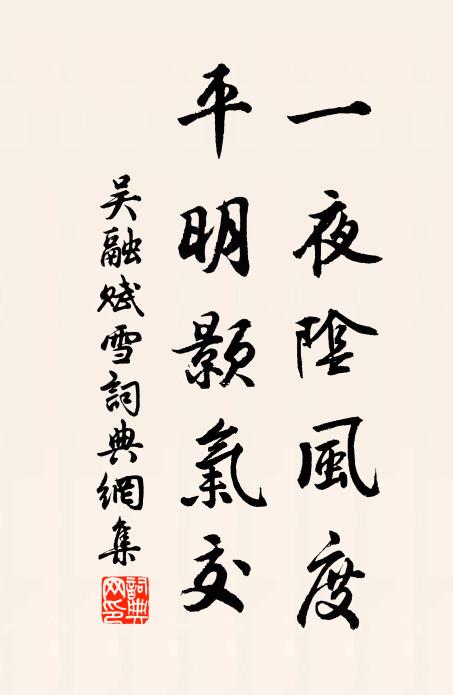 一夜陰風度
平明顥氣交
吳融賦雪詞典網集
詞典網印